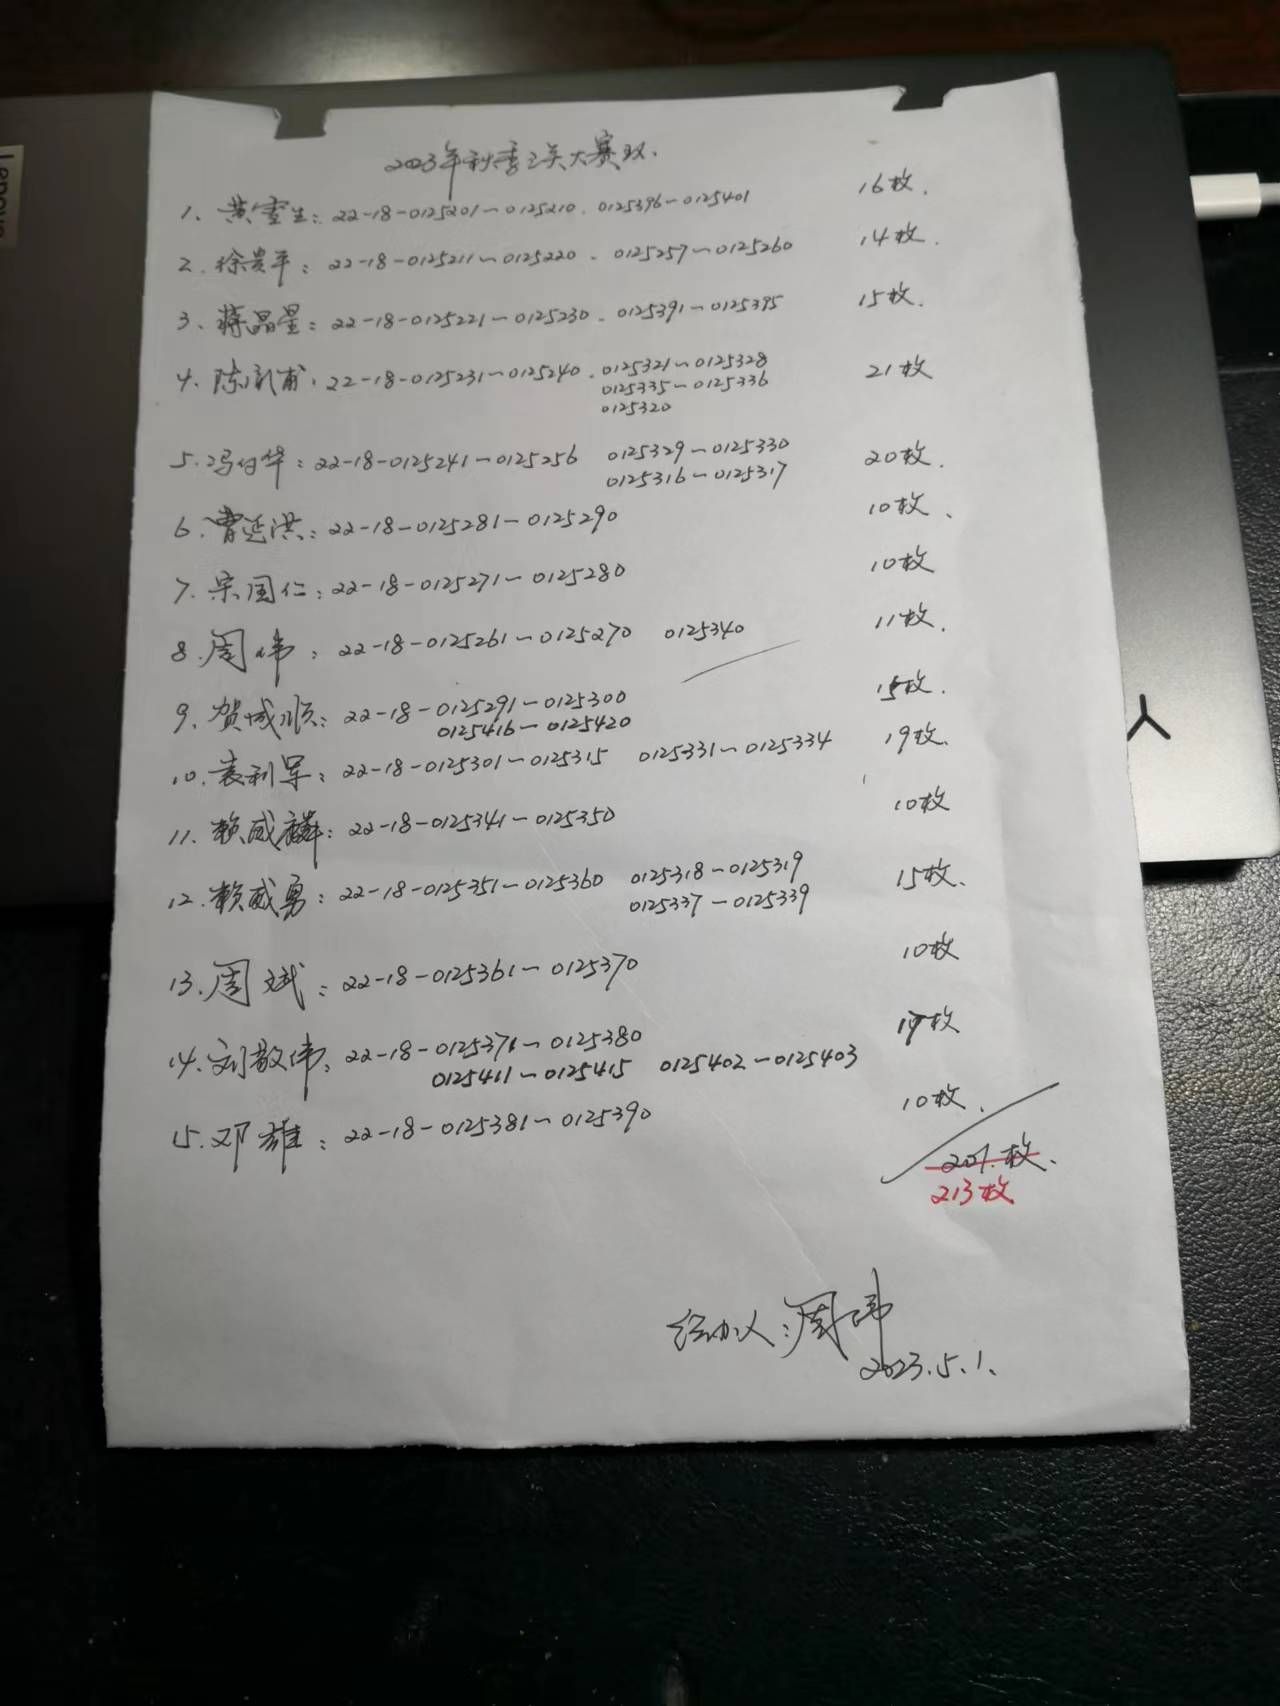 2023年秋季三关大赛环.
1、黄雪生：22-18-0125201～0125210．0125396～0125401 16枚.
2、徐贵平：22-18-0125211～0125220．0125257～0125260 14枚.
3、蒋晶星：22-18-0125221～0125230．0125391～0125395 15枚.
4、陈甫：22-18-0125231～0125240．0125321～0125328 21枚
0125335～0125336
0125320
5、冯付华：22-18-0125241～0125256 0125329～0125330 20枚.
0125316～0125317
6、曹延洪：22-18-0125281～0125290 10枚、
7、宋国仁：22-18-0125271～0125280 10枚
8、周伟：22-18-0125261～0125270 0125340 11枚.
9、贺城顺：22-18-0125291～0125300 15枚.
0125416～0125420
10、袁利军：22-18-0125301～0125315 0125331～0125334 19枚.
11、赖威麟：22-18-0125341～0125350 10枚
12、赖威勇：22-18-0125351～0125360 0125318～0125319 15枚.
0125337～0125339
13、周斌：22-18-0125361～0125370 10枚
14、刘敬伟：22-18-0125371～0125380 17枚
0125411～0125415 0125402～0125403
15、邓雄：22-18-0125381～0125390 10枚.
枚、
213枚
经办人：周伟
2023.5.1.
Lenovo